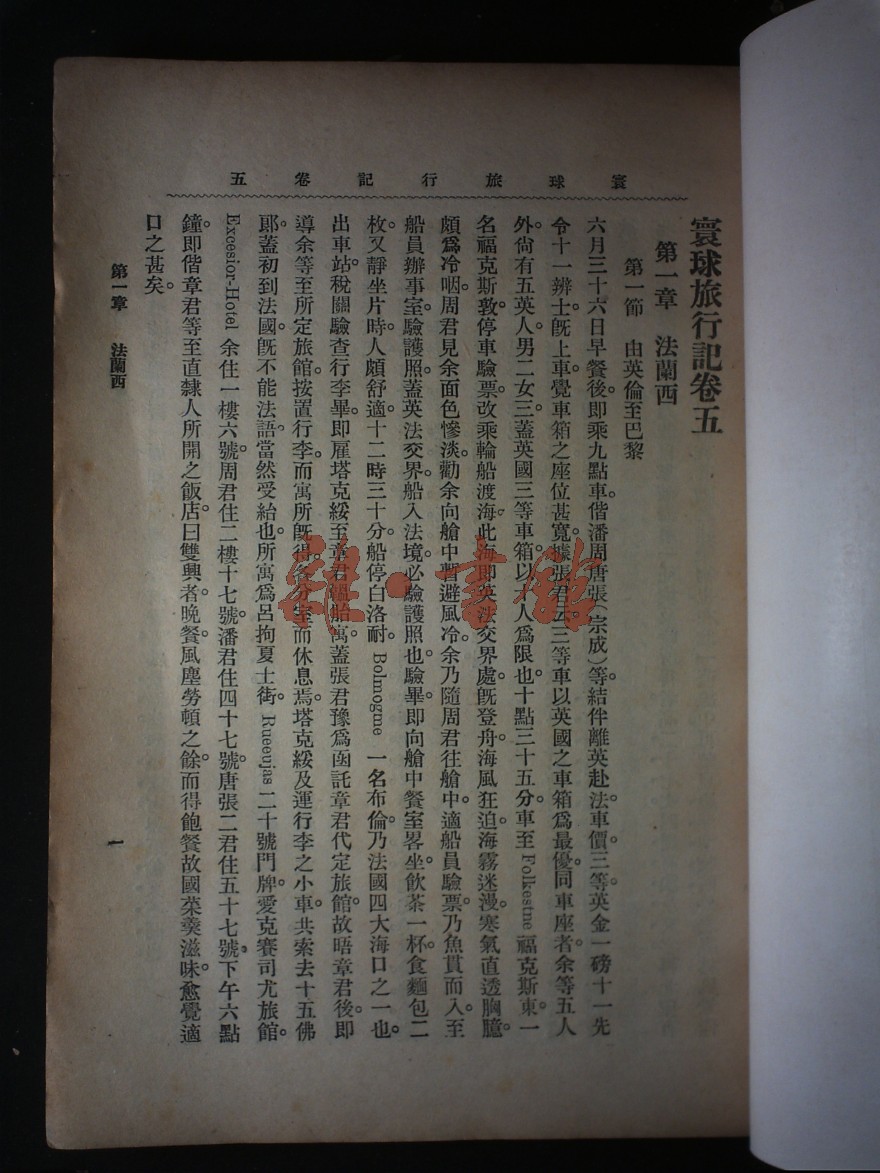 寰球旅行記卷五
寰球旅行記卷五
第一章 法蘭西
第一節 由英倫至巴黎
六月三十六日早餐後。即乘九點車。偕潘周唐張(宗成)等結伴離英赴法。車價。三等。英金一磅十一先
令十一辨士。既上車。覺車箱之座位甚寬。據張君云。三等車以英國之車箱爲最優。同車座者。余等五人
外。尙有五英人。男二女三。蓋英國三等車箱。以 人爲限也。十點三十五分。車至 Folkestne 福克斯東。一
名福克斯敦。停車驗票。改乘輪船渡海。此海即英法交界處。既登舟。海風狂迫。海霧迷漫。寒氣直透胸臆。
頗爲冷咽。周君見余面色慘淡。勸余向艙中暫避風冷。余乃隨周君往艙中。適船員驗票。乃魚貫而入。至
船員辦事室。驗護照。蓋英法交界。船入法境。必驗護照也。驗畢。即向艙中餐室畧坐。飲茶一杯。食麵包二
枚。又靜坐片時。人頗舒適。十二時三十分。船停白洛耐。Bolmogme 一名布倫。乃法國四大海口之一也。
出車站。稅關驗查行李畢。即雇塔克綏至章君 寓。蓋張君豫爲函託章君代定旅館。故晤章君後。即
導余等至所定旅館。按置行李。而寓所既得。各分室而休息焉。塔克綏及運行李之小車。共索去十五佛
郎。蓋初到法國。既不能法語。當然受紿也。所寓爲呂拘夏士街。Rueeujas 二十號門牌。愛克賽司尤旅館。
Excesior-Hotel 余住一樓六號。周君住二樓十七號。潘君住四十七號。唐張二君住五十七號。下午六點
鐘。即偕章君等至直隸人所開之飯店。曰雙興者。晚餐。風塵勞頓之餘。而得飽餐故國菜羹滋味。愈覺適
口之甚矣。
第一章 法蘭西
一
雜·書館